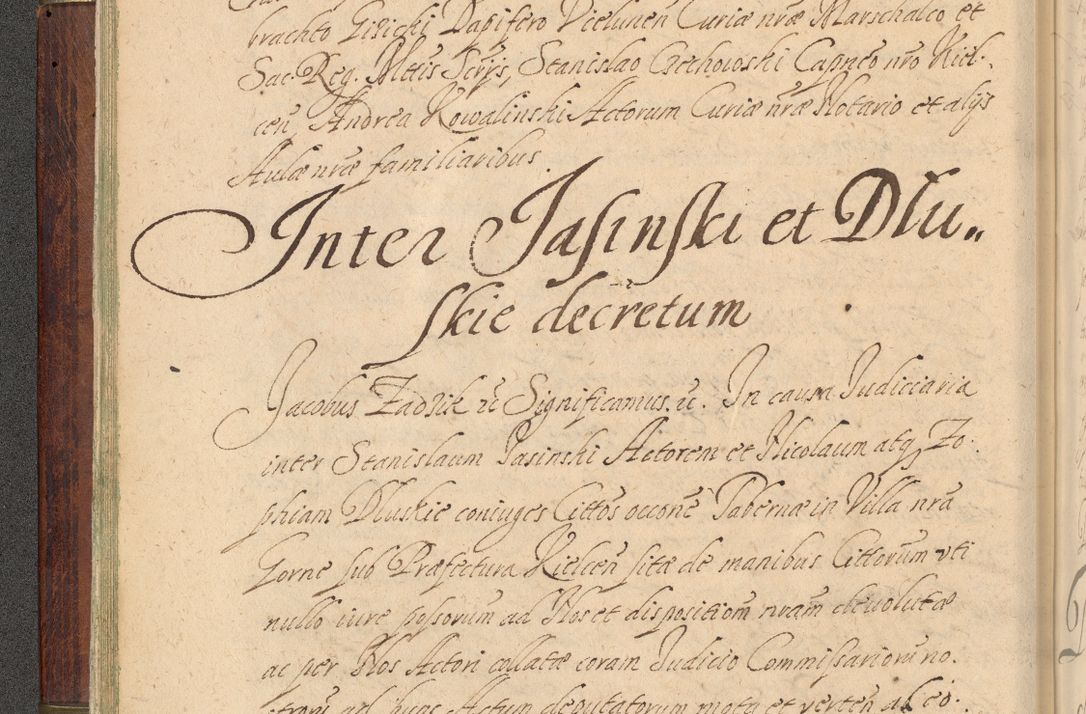 brachto Giricki Dapifero Vielunen Curiæ nræ Marschalco et
Sac. Reg. Mttis Scrijs, Stanislao Czechowski Capneo nro Kiel-
cen, Andrea Kowalinski Actorum Curiæ nræ Notario et alijs
Aulæ nræ familiaribus
Inter Jasinski et Dlu„
skie decretum
Jacobus Zadzik etc Significamus etc. In causa Judiciaria
inter Stanislaum Jasinski Actorem et Nicolaum atq Zo-
phiam Dluskie coniuges Cittos occone Tabernæ in Villa nra
Gorne sub Præfectura Kielcen sitæ de manibus Cittorum uti
nullo iure possorum ad Nos et dispositiom nram devolutæ
ac per Nos Actori collatæ coram Judicio Commissariorum no-
strorum ad hunc Actum deputatorum mota et verten ab eo-